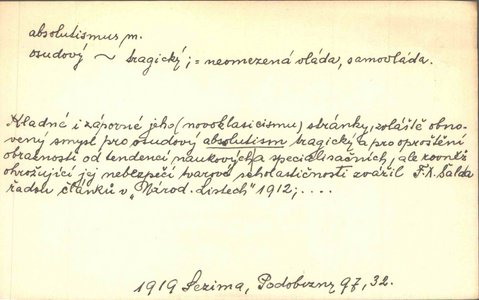 absolutismus, m.
osudový ~ tragický; = neomezená vláda, samovláda.
Kladné i záporné jeho (novoklasicismu) stránky, zvláště obno-
vený smysl pro osudový absolutism tragický a pro oproštění
obraznosti od tendencí naukových a specialisačních, ale rovněž
ohrožující jej nebezpečí tvarové scholastičnosti zvážil F. X. Šalda
řadou článků v „Národ. Listech" 1912; ....
1919 Sezima, Podobizny 97, 32.